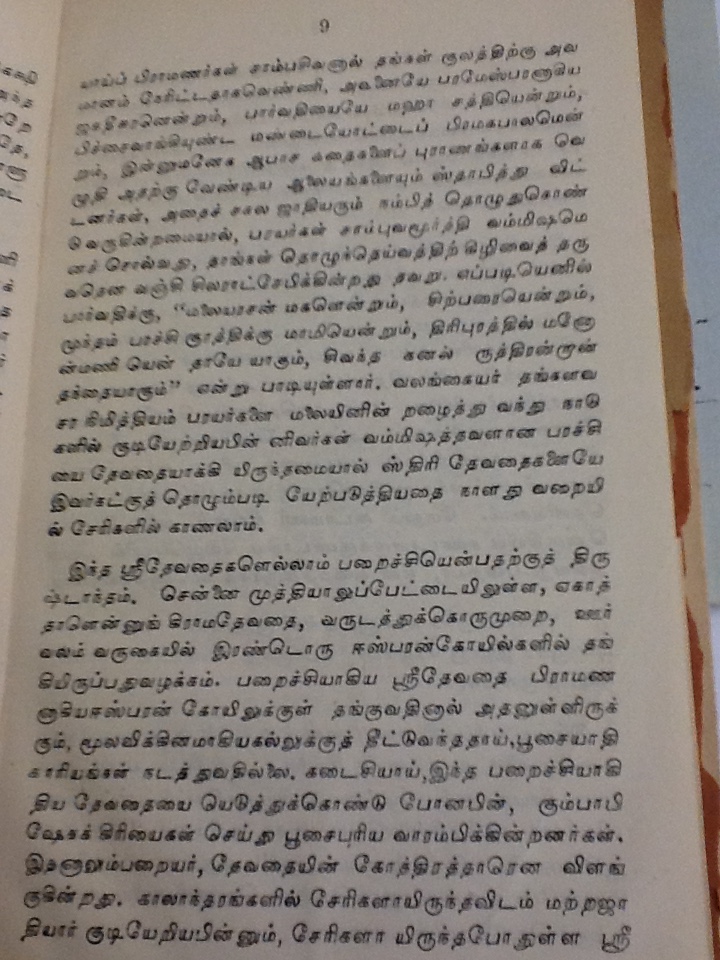 9
யாய்ப் பிராமணர்கள் சாம்பசிவனால் தங்கள் குலத்திற்கு அவ
மானம் நேரிட்டதாகவெண்ணி, அவனையே பரமேஸ்பரனாகிய
ஜகதீசுரனென்றும், பார்வதியையே மஹா சத்தியென்றும்,
பிச்சைவாங்கியுண்ட மண்டையோட்டைப் பிரமகபாலமென்
றும், இன்னுமனேக ஆபாச கதைகளைப் புராணங்களாக வெ
முதி அதற்கு வேண்டிய ஆலையங்களையும் ஸ்தாபித்து விட்
டனர்கள், அதைச் சகல ஜாதியரும் நம்பித் தொழுதுகொண்
டுவருகின்றமையால், பரயர்கள் சாம்புவமூர்த்தி வம்மிஷமெ
னச் சொல்வது, தாங்கள் தொழுந்தெய்வத்திற் கிழிவைத் தரு
வதென வஞ்சி சிலராட்சேபிக்கின்றது தவறு. எப்படியெனில்
பார்வதிக்கு, “மலையரசன் மகளென்றும், சிற்பரையென்றும்,
முந்தம் பரச்சி சூரத்திக்கு மாமியென்றும், திரிபுரத்தில் மனோ
ன்மணி யென் தாயே யாகும், சிவந்த கனல் ருத்திரன்றான்
தந்தையாகும்” என்று பாடியுள்ளார். வலங்கையர் தங்களவ
சர நிமித்தியம் பரயர்களை மலையினின் றழைத்து வந்து நாடு
களில் குடியேற்றியபின் னிவர்கள் வம்மிஷத்தவளான பரச்சி
யை தேவதையாக்கி யிருந்தமையால் ஸ்திரி தேவதைகளையே
இவர்கட்குத் தொழும்படி யேற்படுத்தியதை நாளது வறையி
ல் சேரிகளில் காணலாம்.
இந்த ஸ்ரீதேவதைகளெல்லாம் பறைச்சியென்பதற்குத் திரு
ஷ்டாந்தம். சென்னை முத்தியாலுப்பேட்டையிலுள்ள, ஏகாத்
தாளென்னுங் கிராமதேவதை, வருடத்துக்கொருமுறை, ஊர்
வலம் வருகையில் இரண்டொரு ஈஸ்பரன்கோயில்களில் தங்
கியிருப்பதுவழக்கம். பறைச்சியாகிய ஸ்ரீதேவதை பிராமண
னாகியஈஸ்பரன் கோயிலுக்குள் தங்குவதினால் அதனுள்ளிருக்
கும், மூலவிக்கினமாகியகல்லுக்குத் தீட்டுவந்ததாய்,பூசையாதி
காரியங்கள் நடத்துவதில்லை. கடைசியாய்,இந்த பறைச்சியாகி
திய தேவதையை யெடுத்துக்கொண்டு போனபின், கும்பாபி
ஷேகக் கிரியைகள் செய்து பூசைபுரிய வாரம்பிக்கின்றனர்கள்.
இதனாலும்பறையர், தேவதையின் கோத்திரத்தாரென விளங்
குகின்றது. காலாந்தரங்களில் சேரிகளாயிருந்தவிடம் மற்றஜா
தியார் குடியேறியபின்னும், சேரிகளா யிருந்தபோதுள்ள ஸ்ரீ